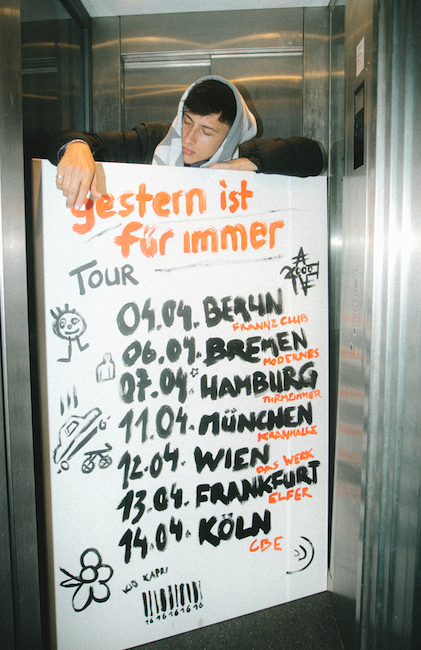 gestern ist
für immer
TOUR
04.04. BERLIN
FRANNZ CLUB
06.04. BREMEN
MODERNES
07.04. HAMBURG
TURMZIMMER
11.04. MÜNCHEN
KRANHALLE
12.04. WIEN
DAS WERK
13.04. FRANKFURT
ELFER
14.04. KÖLN
CBE
KID KAPRI
16 16 16 16 16